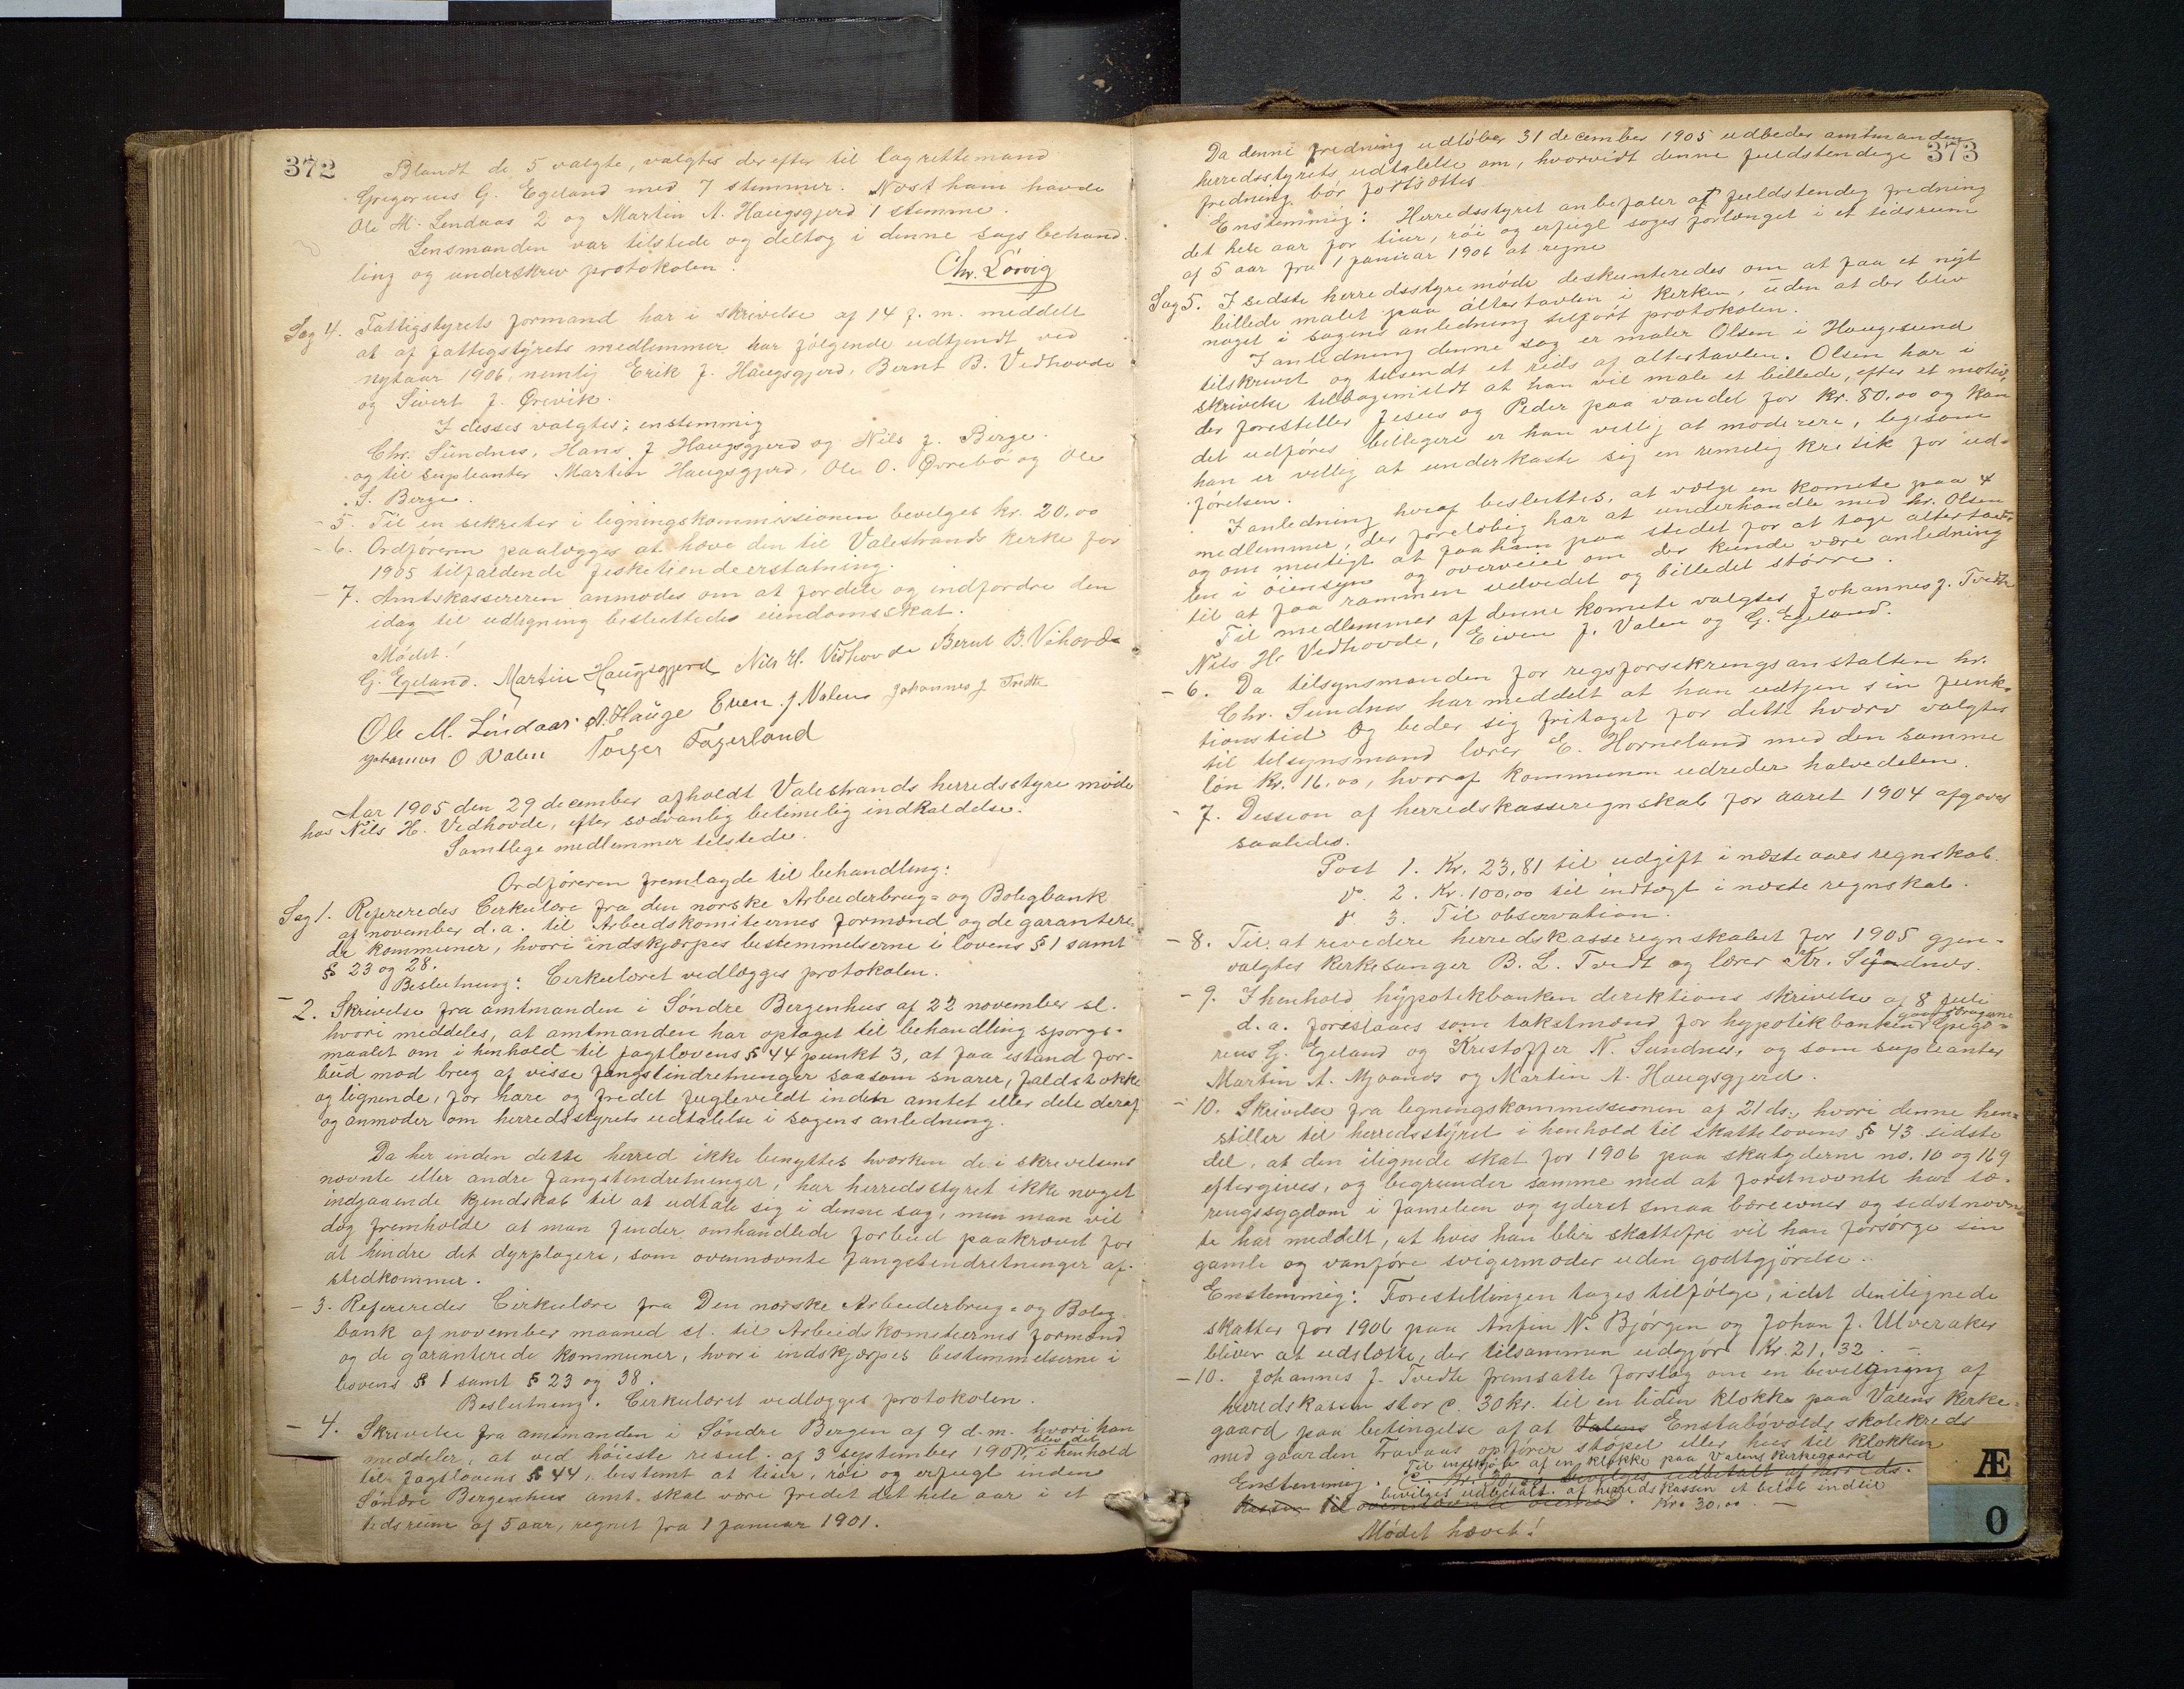 372
Blandt de 5 valgte, valgtes derefter til lagrettemand
Gregorius G. Egeland med 7 stemmer. Næst ham havde
Ole M. Lendaas 2 og Martin A. Haugsgjerd 1 stemme.
Lensmanden var tilstede og deltog i denne sags behand-
ling og underskrev protokolen.
Chr. Lørvig
Sag 4. Fattigstyrets formand har i skrivelse af 14 f. m. meddelt
at af fattigstyrets medlemmer har følgende udtjendt ved
nytaar 1906, nemlig Erik J. Haugsgjerd, Bernt B. Vedhovde
og Sivert J. Ørevik.
I desses valgtes; enstemmig
Chr. Sundnes, Hans J Haugsgjerd og Nils J. Berge.
og til supleanter Martin Haugsgjerd, Ole O. Øvrebø og Ole
S. Berge.
- 5. Til en sekretær i ligningskommissionen bevilges kr. 20,00
- 6. Ordføreren paalægges at hæve den til Valestrands kerke for
1905 tilfaldende fisketiendeerstatning.
- 7. Amtskassereren anmodes om at fordele og indfordre den
idag til udligning besluttede eiendomsskat.
Mødet!
G. Egeland. Martin Haugsgjerd Nils H. Vedhovde Bernt B. Vehovde
Ole M. Lindaas A. Hauge Even J. Valen Johannes J Tvedte
Johannes O Valen Torger Fagerland
Aar 1905 den 29 december afholdt Valestrands herredsstyre møde
hos Nils H. Vedhovde, efter sædvanlig betimelig indkaldelse.
Samtlege medlemmer tilstede.
Ordføreren fremlagde til behandling:
Sag 1. Refereredes Cirkulære fra den norske Arbeiderbrug- og Boligbank
af november d. a. til Arbeidskomiteernes formænd og de garantere
de kommuner, hvori indskjærpes bestemmelserne i lovens § 1 samt
§ 23 og 28.
Beslutning: Cirkulæret vedlægges protokolen.
- 2. Skrivelse fra amtmanden i Søndre Bergenhus af 22 november sl.
hvori meddeles, at amtmanden har optaget til behandling spørgs-
maalet om i henhold til jagtlovens § 44 punkt 3, at faa istand for-
bud mod brug af visse fangstindretninger saasom snarer, faldstokke
og lignende, for hare og fredet fuglevildt inden amtet eller dele deraf
og anmoder om herredsstyrets udtalelse i sagens anledning.
Da her inden dette herred ikke benyttes hverken de i skrevelsens
nævnte eller andre fangstindretninger, har herredsstyret ikke noget
indgaaende kjendskab til at udtale sig i denne sag, men man vil
dog fremholde at man finder omhandlede forbud paakrævet for
at hindre det dyrplageri, som ovennævnte fangstindretninger af-
stedkommer.
- 3. Refereredes Cirkulære fra Den norske Arbeiderbrug- og Bolig
bank af november maaned sl. til Arbeidskomiteernes formænd
og de garanterede kommuner, hvori indskjærpes bestemmelserne i
lovens § 1 samt § 23 og 38.
Beslutning. Cirkulæret vedlægges protokolen.
- 4. Skrivelse fra amtmanden i Søndre Bergen af 9 d. m. hvori han
blev det
meddeler, at ved høieste resul. af 3 september 190, i henhold
til jagtlovens § 44, bestemt at tiur, røi og erfugl inden
Søndre Bergenhus amt. skal være fredet det hele aar i et
tidsrum af 5 aar, regnet fra 1 januar 1901.
373
Da denne fredning udløber 31 december 1905 udbeder amtmanden
herredsstyrets udtalelse om, hvorvidt denne fuldstendige
fredning bør fortsættes
Enstemmig: Herredsstyret anbefaler at fuldstendig fredning
det hele aar for tiur, røi og erfugl søges forlænget i et tidsrum
af 5 aar fra 1 januar 1906 at regne
Sag 5. I sidste herredsstyremøde deskunteredes om at faa et nyt
billede malet paa altertavlen i kerken, uden at der blev
noget i sagens anledning tilført protokolen.
I anledning denne sag er maler Olsen i Haugesund
tilskrevet og tilsendt et rids af altertavlen. Olsen har i
skrivelse tilbagemeldt at han vil male et billede, efter et motiv,
der forestiller Jesus og Peder paa vandet for kr. 80,00 og kan
det udføres billegere er han villig at moderere, legesom
han er villig at underkaste sig en rimelig kretik for ud-
førelsen.
I anledning heraf besluttes, at vælge en komete paa 4
medlemmer, der foreløbig har at underhandle med hr. Olsen
og om muligt at faa ham paa stedet for at tage altertavl-
en i øiensyn og overveie om der kunde være anledning
til at faa rammen udvidet og billedet større.
Til medlemmer af denne komete valgtes Johannes J. Tvedte
Nils Hr Vedhovde, Eiven J. Valen og G. Egeland.
- 6. Da tilsynsmanden for regsforsekringsanstalten hr.
Chr. Sundnes har meddelt at han udtjen sin funk-
tionstid Og beder sig fritaget for dette hværv valgtes
til tilsynsmand lærer E. Horneland med den samme
løn Kr. 16,00, hvoraf kommunen udreder halvedelen.
- 7. Dession af herredskasseregnskab for aaret 1904 afgaves
saaledes.
Post 1. Kr. 23,81 til udgift i næste aars regnskab.
do 2. Kr. 100,00 til indtægt i næste regnskab.
do 3. Til observation.
- 8. Til at revidere herredskasseregnskabet for 1905 gjen-
valgtes kerkesanger B. L. Tvedt og lærer Kr. Sundnes.
- 9. I henhold hypotekbanken direktions skrivelse af 8 juli
d. a. foreslaaes som takstmænd for hypotikbanken Grego-
rius G. Egeland og Kristoffer N. Sundnes, og som supleanter
Martin A. Mjaanes og Martin A. Haugsgjerd.
- 10. Skrivelse fra legningskommessionen af 21 ds., hvori denne hen-
stiller til herredsstyret i henhold til skattelovens § 43 sidste
del, at den ilignede skat for 1906 paa skatyderne no. 10 og 169
eftergives, og begrunder samme med at førstnævnte har tæ-
rengssygdom i familien og yderst smaa bæreevner og sidstnævn-
te har meddelt, at hvis han blir skattefri vil han forsørge sin
gamle og vanføre svigermoder uden godtgjørelse.
Enstemmig: Forestillingen tages tilfølge, idet den ilignede
skatter for 1906 paa Anfin N. Bjørgen og Johan J. Ulveraker
bliver at udslette, der tilsammen udgjør Kr. 21,32.
- 10. Johannes J. Tvedte fremsatte forslag om en bevilgning af
herredskassen stor c. 30 kr. til en liden klokke paa Valens kerke-
gaard paa betingelse af at Valens Enstabøvolds skolekreds
med gaarden Travaas opfører støpel eller hus til klokken
Til indkjøb af en klokke paa Valens kirkegaard
Enstemmig. Kr. 30,00 bevilges udbetalt af herreds-
bevilges udbetalt af herredskassen et beløb indtil
kassen til ovennævnte øiemed. Kr. 30,00.
Mødet hævet!
Æ
O